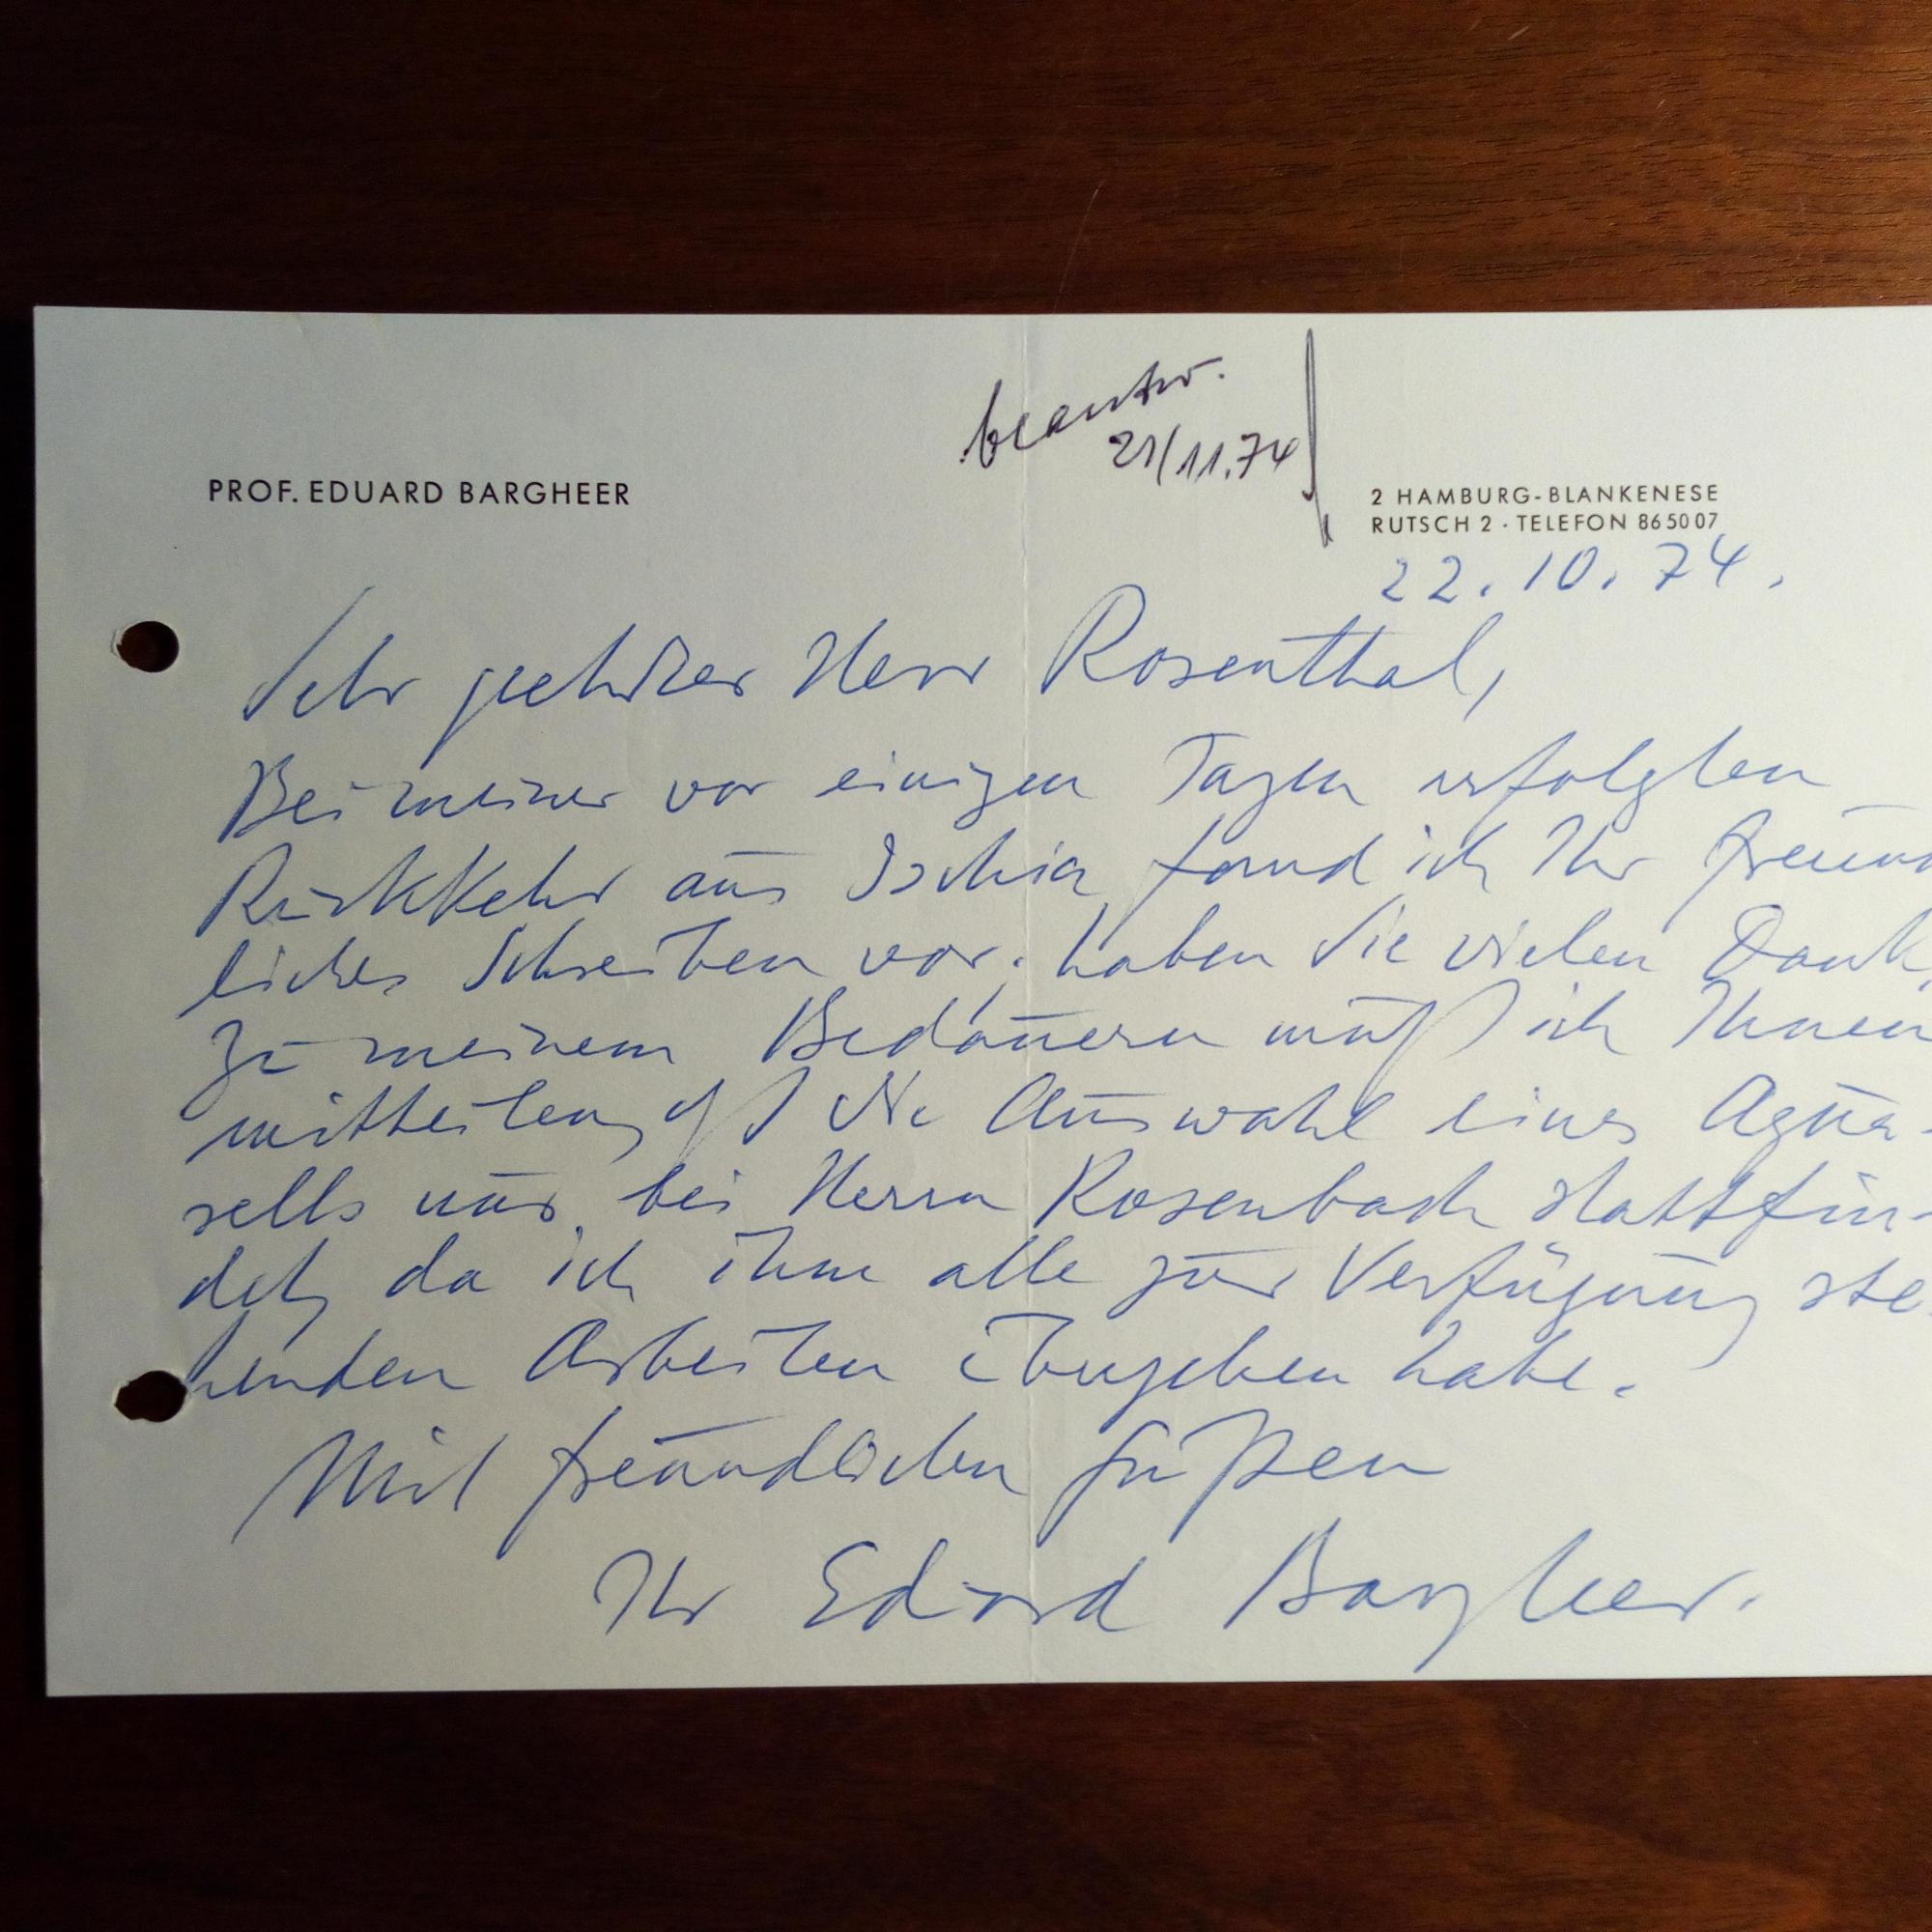 beantw.
21/11.74
PROF. EDUARD BARGHEER
2 HAMBURG-BLANKENESE
RUTSCH 2 · TELEFON 865007
22.10.74.
Sehr geehrter Herr Rosenthal,
Bei meiner vor einigen Tagen erfolgten
Rückkehr aus Ischia fand ich Ihr freund
liches Schreiben vor; haben Sie vielen Dank
Zu meinem Bedauern muß ich Ihnen
mitteilen, daß die Auswahl eines Aqua-
rells nur bei Herrn Rosenbach stattfin-
det, da ich ihm alle zur Verfügung ste
henden Arbeiten übergeben habe.
Mit freundlichen Grüßen
Ihr Eduard Bargheer.